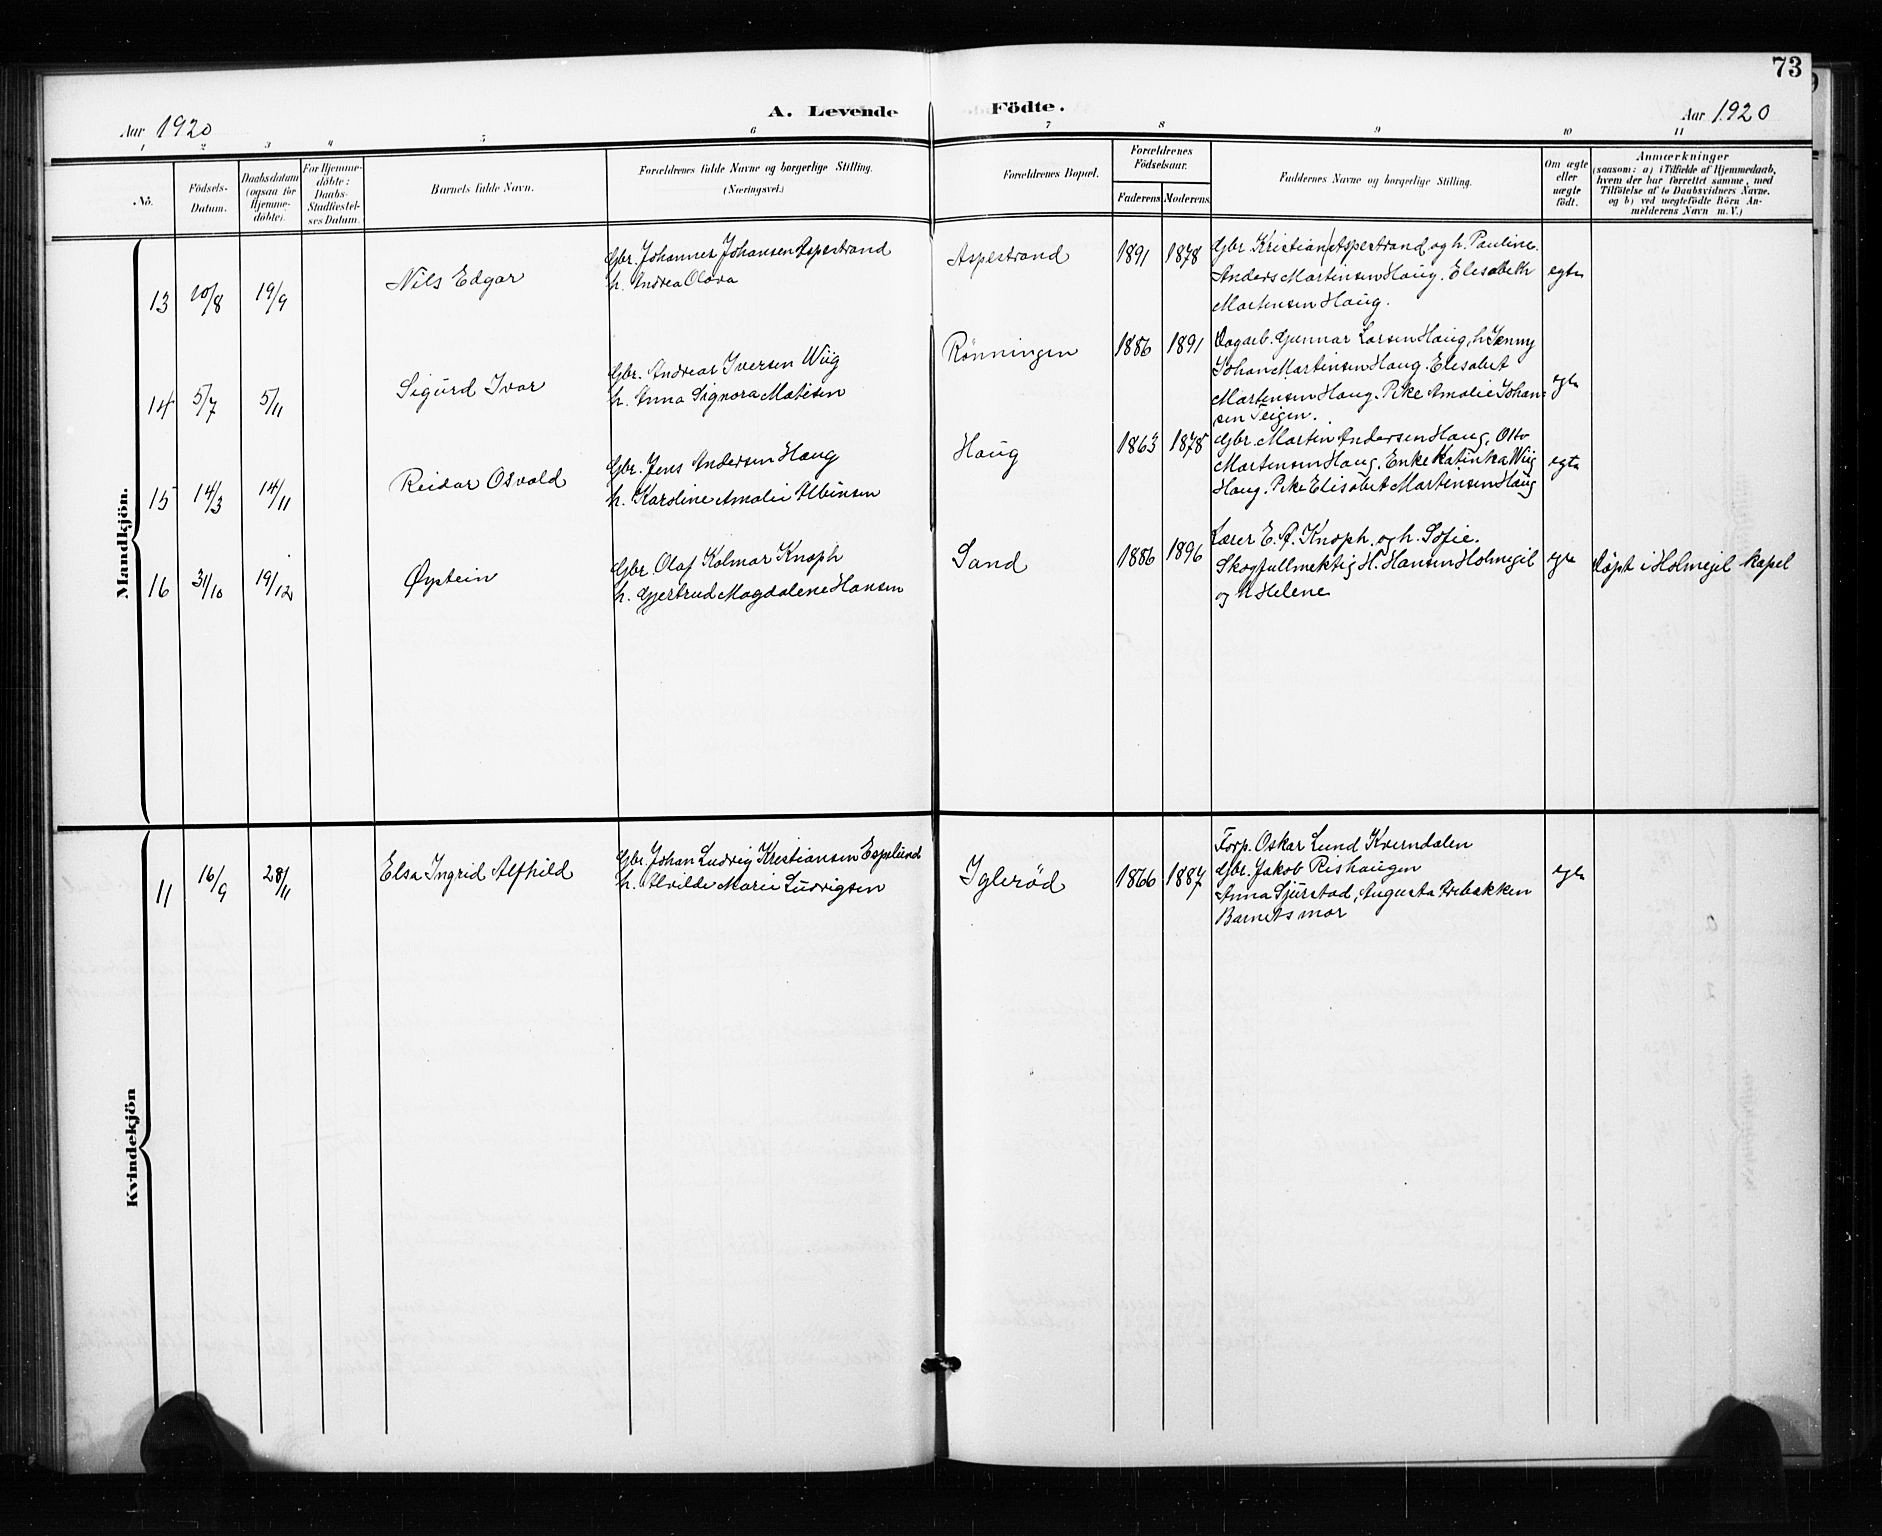 73
Aar 1920
A. Levende Födte.
Aar 1920
1 2 3 4 5 6 7 8 9 10 11
No.
Födsels-Datum.
Daabsdatum (ogsaa for Hjemme-döbte).
For Hjemme-döbte: Daabs-Stadfæstel-ses Datum.
Barnets fulde Navn.
Forældrenes fulde Navne og borgerlige Stilling. (Næringsvei.)
Forældrenes Bopæl.
Forældrenes Födselsaar.
Faderens Moderens
Faddernes Navne og borgerlige Stilling.
Om ægte eller uægte födt.
Anmærkninger
(saasom: a) i Tilfælde af Hjemmedaab,
hvem der har forrettet samme, med
Tilföielse af to Daabsvidners Navne,
og b) ved uægtefödte Börn An-
melderens Navn m. V.)
Mandkjön.
13 10/8 19/9 Nils Edgar
Gbr. Johannes Johansen Aspestrand
h. Andrea Olava
Aspestrand 1891 1878
Gbr Kristian Aspestrand og h. Pauline.
Anders Martinsen Haug. Elisabeth
Martensen Haug.
egte
14 5/7 5/11 Sigurd Ivar
Gbr. Andreas Iversen Wiig
h. Anna Signora Matisen
Rönningen 1886 1891
Dagarb. Gunnar Larsen Haug, h. Jenny
Johan Martinsen Haug. Elisabet
Martensen Haug. Pike Amalie Johan=
sen Teigen.
egte
15 14/3 14/11 Reidar Osvald
Gbr. Jens Andersen Haug
h. Karoline Amalie Albinsen
Haug 1863 1878
Gbr. Martin Andersen Haug. Otto
Martensen Haug. Enke Katinka Wiig
Haug. Pike Elisabet Martensen Haug
egte
16 31/10 19/12 Øystein
Gbr. Olaf Kolmar Knoph
h. Gjertrud Magdalene Hansen
Sand 1886 1896
Lærer E. A. Knoph. og h. Sofie.
Skogfullmektig H. Hansen Holmegil
og h Helene
egte
Döpt i Holmegil kapel
Kvindekjön
11 16/9 28/11 Elsa Ingrid Alfhild
Gbr. Johan Ludvig Kristiansen Espelund
h. Alvilde Marie Ludvigsen
Iglerød 1866 1887
Forp. Oskar Lund Kverndalen
Gbr. Jakob Rishaugen
Anna Sjurstad, Augusta Arebakken
Barnets mor
egte